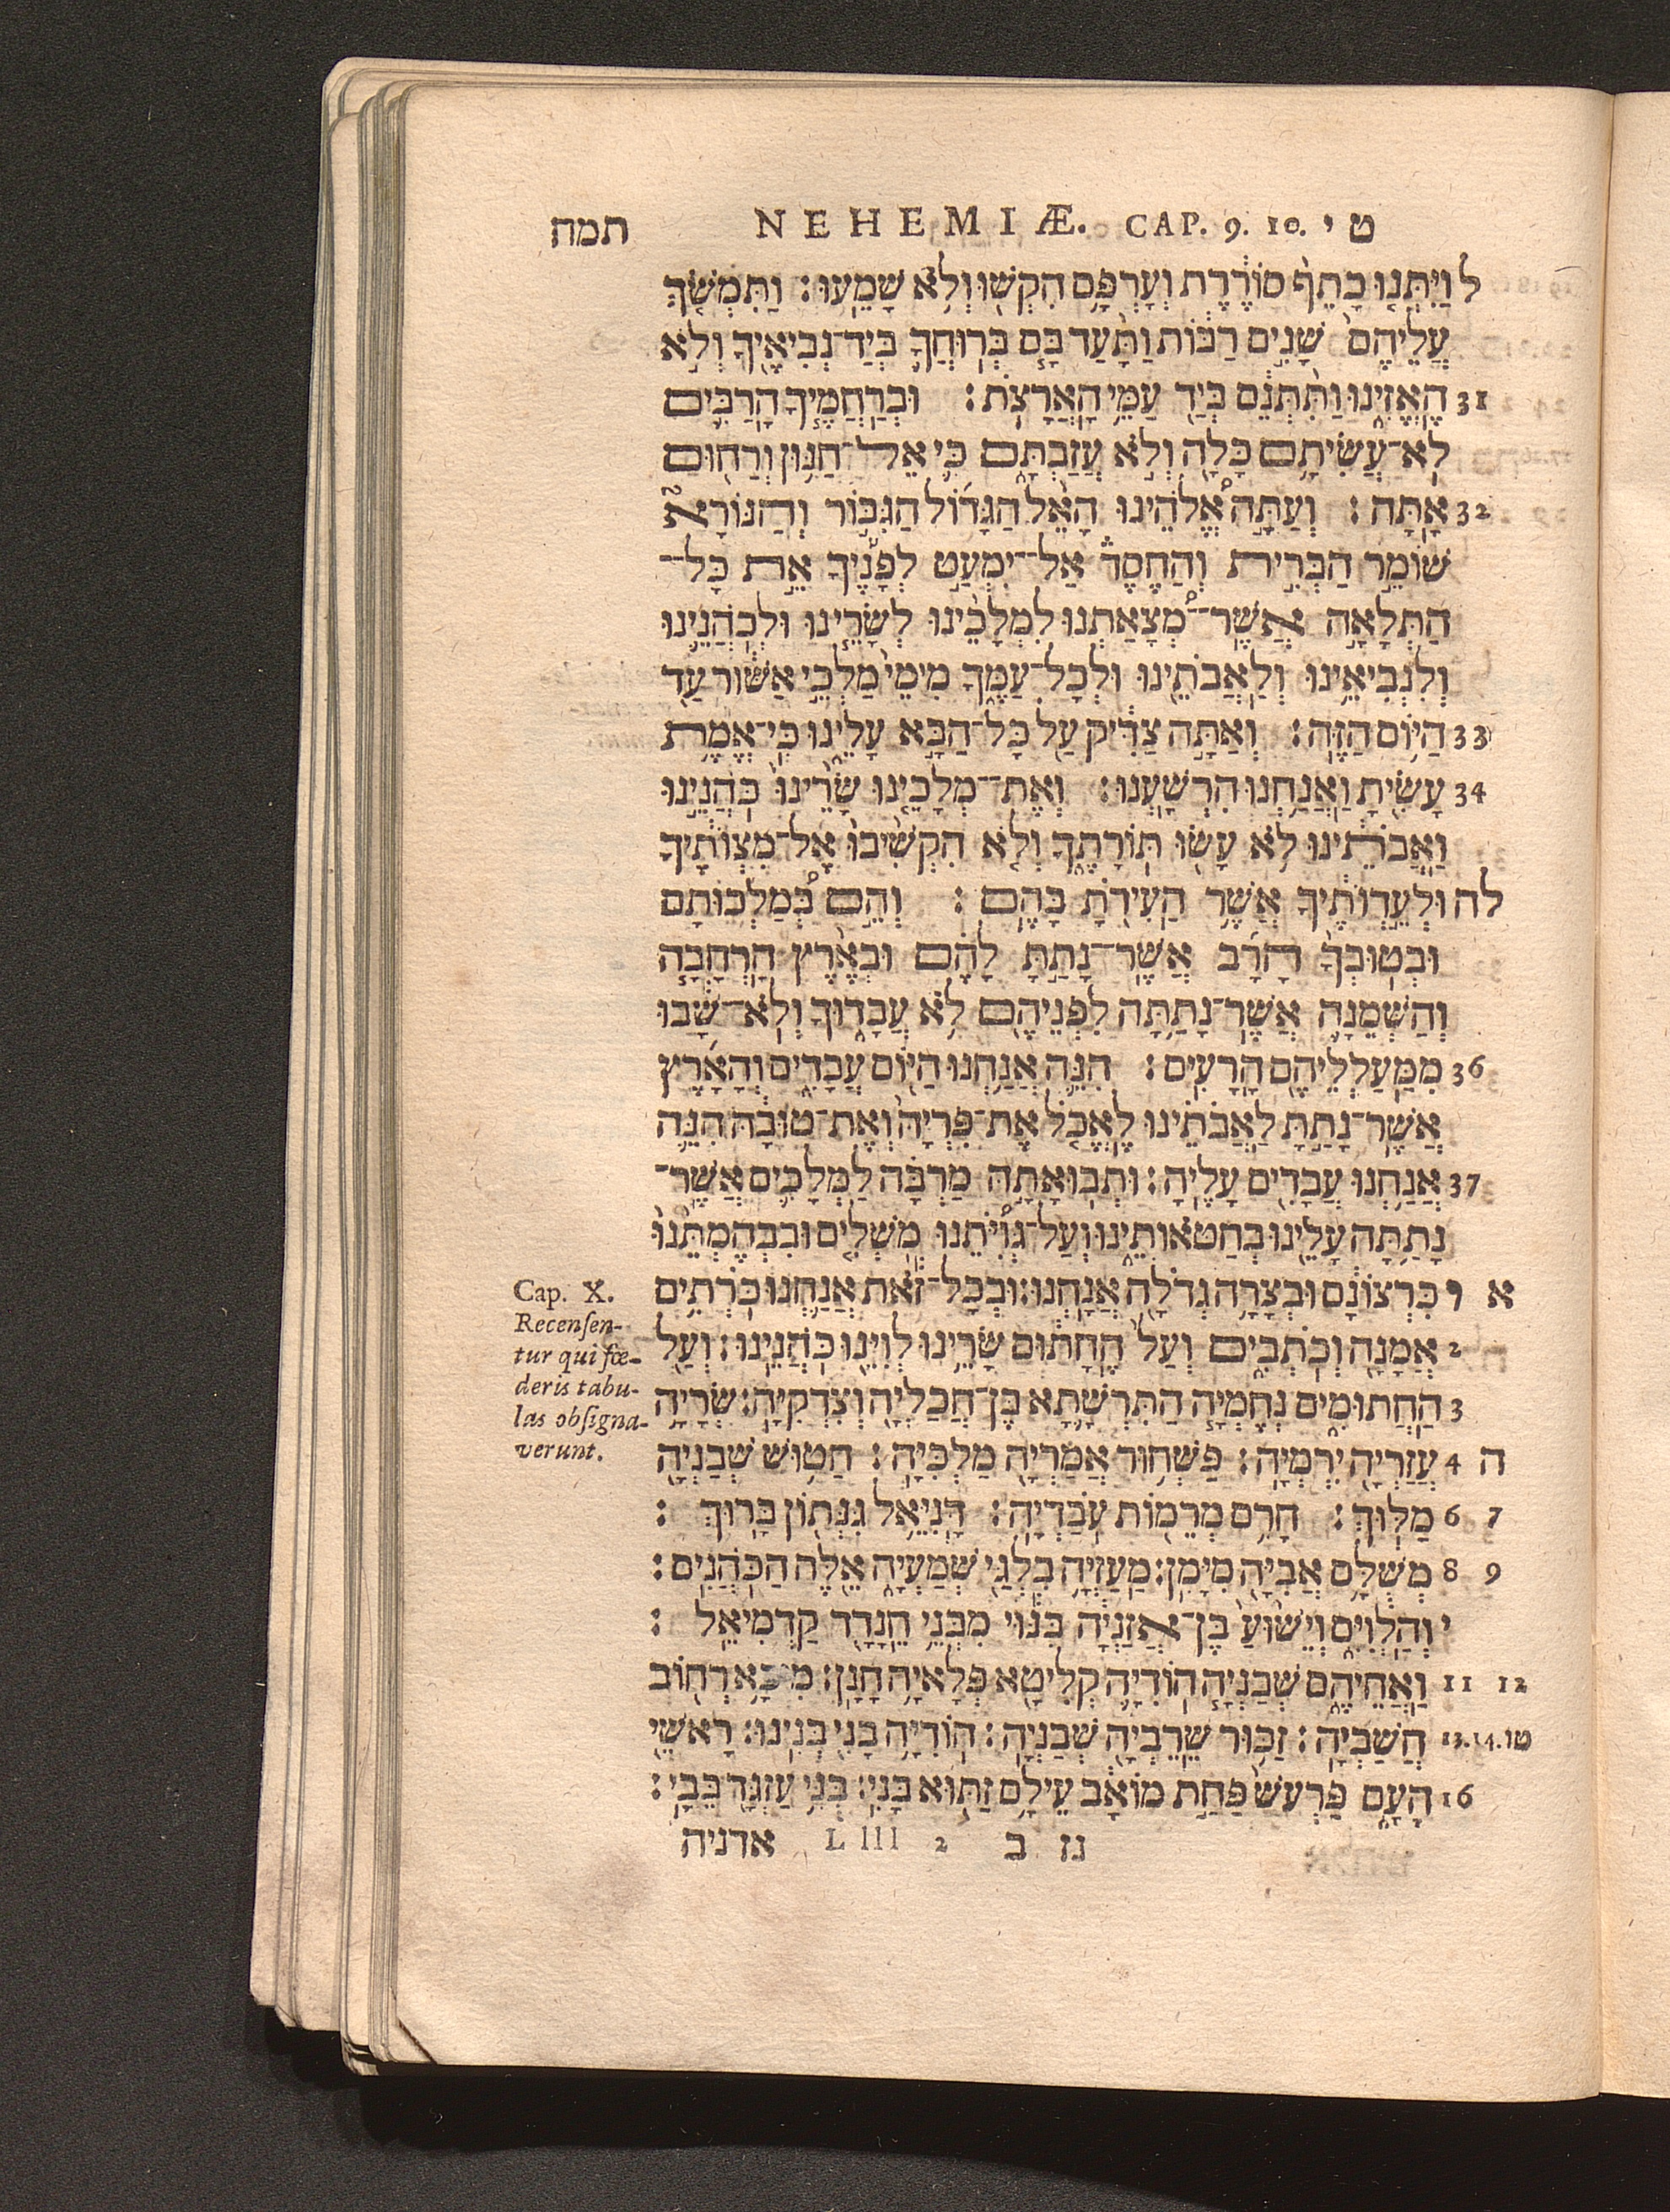 תמח NEHEMIÆ. CAP. 9. 10. ט י
ל וַיִּתְּנוּ כָתֵף סוֹרֶרֶת וְעָרְפָּם הִקְשׁוּ וְלֹא שָׁמֵעוּ׃ וַתִּמְשֹׁךְ
עֲלֵיהֶם שָׁנִים רַבּוֹת וַתָּעַד בָּם בְּרוּחֲךָ בְּיַד־נְבִיאֶיךָ וְלֹא
31 הֶאֱזִינוּ וַתִּתְּנֵם בְּיַד עַמֵּי הָאֲרָצֹת׃ וּבְרַחֲמֶיךָ הָרַבִּים
לֹא־עֲשִׂיתָם כָּלָה וְלֹא עֲזַבְתָּם כִּי אֵל־חַנּוּן וְרַחוּם
32 אָתָּה׃ וְעַתָּה אֱלֹהֵינוּ הָאֵל הַגָּדוֹל הַגִּבּוֹר וְהַנּוֹרָא
שׁוֹמֵר הַבְּרִית וְהַחֶסֶד אַל־יִמְעַט לְפָנֶיךָ אֵת כָּל־
הַתְּלָאָה אֲשֶׁר־מְצָאַתְנוּ לִמְלָכֵינוּ לְשָׂרֵינוּ וּלְכֹהֲנֵינוּ
וְלִנְבִיאֵינוּ וְלַאֲבֹתֵינוּ וּלְכָל־עַמֶּךָ מִימֵי מַלְכֵי אַשּׁוּר עַד
33 הַיּוֹם הַזֶּה׃ וְאַתָּה צַדִּיק עַל כָּל־הַבָּא עָלֵינוּ כִּי־אֱמֶת
34 עָשִׂיתָ וַאֲנַחְנוּ הִרְשָׁעְנוּ׃ וְאֶת־מְלָכֵינוּ שָׂרֵינוּ כֹּהֲנֵינוּ
וַאֲבֹתֵינוּ לֹא עָשׂוּ תּוֹרָתֶךָ וְלֹא הִקְשִׁיבוּ אֶל־מִצְוֹתֶיךָ
לה וּלְעֵדְוֹתֶיךָ אֲשֶׁר הַעִידֹתָ בָּהֶם׃ וְהֵם בְּמַלְכוּתָם
וּבְטוּבְךָ הָרָב אֲשֶׁר־נָתַתָּ לָהֶם וּבְאֶרֶץ הָרְחָבָה
וְהַשְּׁמֵנָה אֲשֶׁר־נָתַתָּה לִפְנֵיהֶם לֹא עֲבָדוּךָ וְלֹא־שָׁבוּ
36 מִמַּעַלְלֵיהֶם הָרָעִים׃ הִנֵּה אֲנַחְנוּ הַיּוֹם עֲבָדִים וְהָאָרֶץ
אֲשֶׁר־נָתַתָּ לַאֲבֹתֵינוּ לֶאֱכֹל אֶת־פִּרְיָהּ וְאֶת־טוּבָהּ הִנֵּה
37 אֲנַחְנוּ עֲבָדִים עָלֶיהָ׃ וּתְבוּאָתָהּ מַרְבָּה לַמְּלָכִים אֲשֶׁר־
נָתַתָּה עָלֵינוּ בְּחַטֹּאותֵינוּ וְעַל־גְּוִיֹּתֵנוּ מֹשְׁלִים וּבִבְהֶמְתֵּנוּ
א י כִּרְצוֹנָם וּבְצָרָה גְדֹלָה אֲנָחְנוּ׃ וּבְכָל־זֹאת אֲנַחְנוּ כֹּרְתִים
2 אֲמָנָה וְכֹתְבִים וְעַל הֶחָתוּם שָׂרֵינוּ לְוִיֵּנוּ כֹּהֲנֵינוּ׃ וְעַל
3 הַחֲתוּמִים נְחֶמְיָה הַתִּרְשָׁתָא בֶּן־חֲכַלְיָה וְצִדְקִיָּה׃ שְׂרָיָה
ה 4 עֲזַרְיָה יִרְמְיָה׃ פַּשְׁחוּר אֲמַרְיָה מַלְכִּיָּה׃ חַטּוּשׁ שְׁבַנְיָה
7 6 מַלּוּךְ׃ חָרִם מְרֵמוֹת עֹבַדְיָה׃ דָּנִיֵּאל גִּנְּתוֹן בָּרוּךְ׃
9 8 מְשֻׁלָּם אֲבִיָּה מִיָּמִן׃ מַעַזְיָה בִלְגַּי שְׁמַעְיָה אֵלֶּה הַכֹּהֲנִים׃
י וְהַלְוִיִּם וְיֵשׁוּעַ בֶּן־אֲזַנְיָה בִּנּוּי מִבְּנֵי חֵנָדָד קַדְמִיאֵל׃
12 11 וַאֲחֵיהֶם שְׁבַנְיָה הוֹדִיָּה קְלִיטָא פְּלָאיָה חָנָן׃ מִיכָא רְחוֹב
טו 13.14. חֲשַׁבְיָה׃ זַכּוּר שֵׁרֵבְיָה שְׁבַנְיָה׃ הוֹדִיָּה בָנִי בְּנִינוּ׃ רָאשֵׁי
16 הָעָם פַּרְעֹשׁ פַּחַת מוֹאָב עֵילָם זַתּוּא בָּנִי׃ בֻּנִּי עַזְגָּד בֵּבָי׃
אדניה Llll 2 נז ב
Cap. X.
Recenſen-
tur qui fœ-
deris tabu-
las obſigna-
verunt.